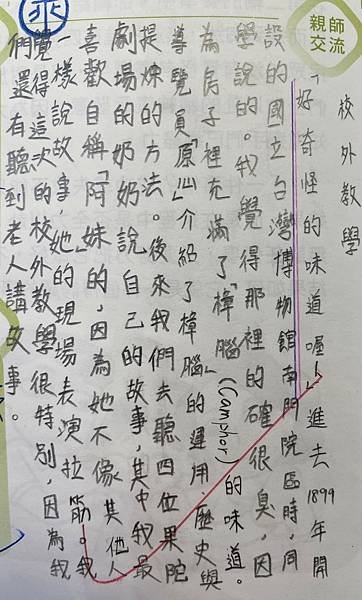 親師
交流
校外教學
「好奇怪的味道喔！」進去1899年開
設的國立台灣博物館南門院區時，同
學說的。我覺得那裡的確很臭，因
為房子裡充滿了「樟腦」(Camphor)的味道。
導覽員「原山」介紹了樟腦的運用、歷史與
提煉的方法。後來我們去聽四位果陀
劇場的奶奶說自己的故事，其中我最
喜歡自稱「阿妹」的，因為她不像其他人
一樣說故事，她的現場表演拉筋。我
覺得這次的校外教學很特別，因為我
們還有聽到老人講故事。